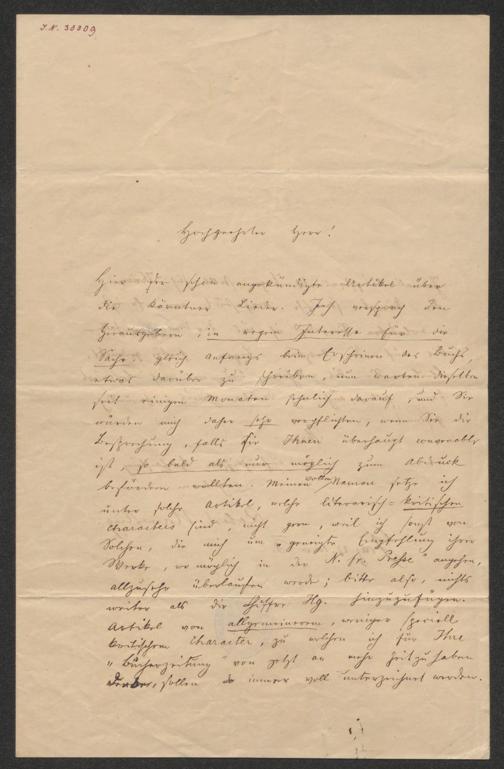 J.N. 30009
Hochgeehrter Herr!
Hier der schon angekündigte Artikel über
die Kärntner Lieder. Ich versprach den
Herausgebern, in regem Interesse für die
Sache gleich Anfangs beim Erscheinen des Buchs,
etwas darüber zu schreiben, nun warten dieselben
seit einigen Monaten sehnlich darauf, und Sie
würden mich daher sehr verpflichten, wenn Sie die
Besprechung, falls sie Ihnen überhaupt
ist, so bald als nur möglich zum Abdruck
befördern wollten. Meinen vollen Namen setze ich
unter solche Artikel, welche literarisch-kritischen
Characters sind, nicht gern, weil ich sonst von
Solchen, die mich um "geneigte Empfehlung ihrer
Werke, wo möglich in der N. fr. Presse" angehen,
allzusehr überlaufen werde; bitte also, nichts
weiter als die Chiffre Hg. hinzuzufügen.
Artikel von allgemeinerem, weniger speciell
kritischem Character, zu welchen ich für Ihre
"Bücherzeitung" von jetzt an mehr Zeit zu haben
, sollen immer voll unterzeichnet werden.